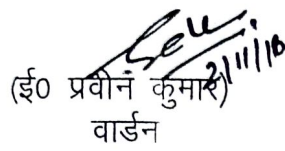 2/11/18
(ई0 प्रवीन कुमार)
वार्डन